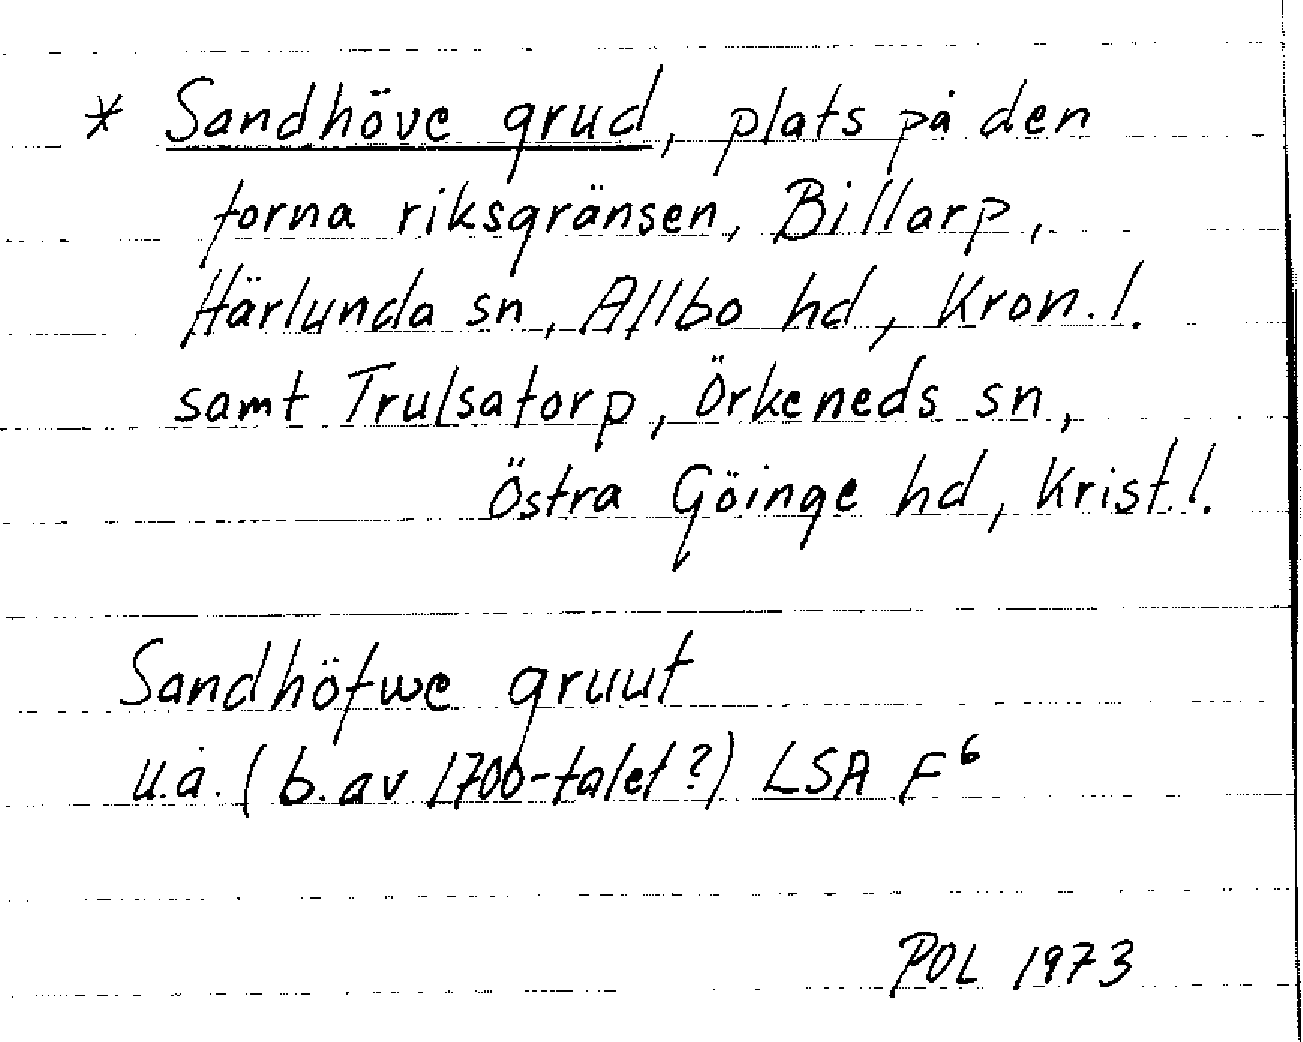 * Sandhöve grud, plats på den
forna riksgränsen, Billarp,
Härlunda sn, Allbo hd, Kron.l.
samt Trulsatorp, Örkeneds sn,
Östra Göinge hd, Krist.l.
Sandhöfwe gruut
u.å. (b. av 1700-talet?) LSA F⁶
POL 1973